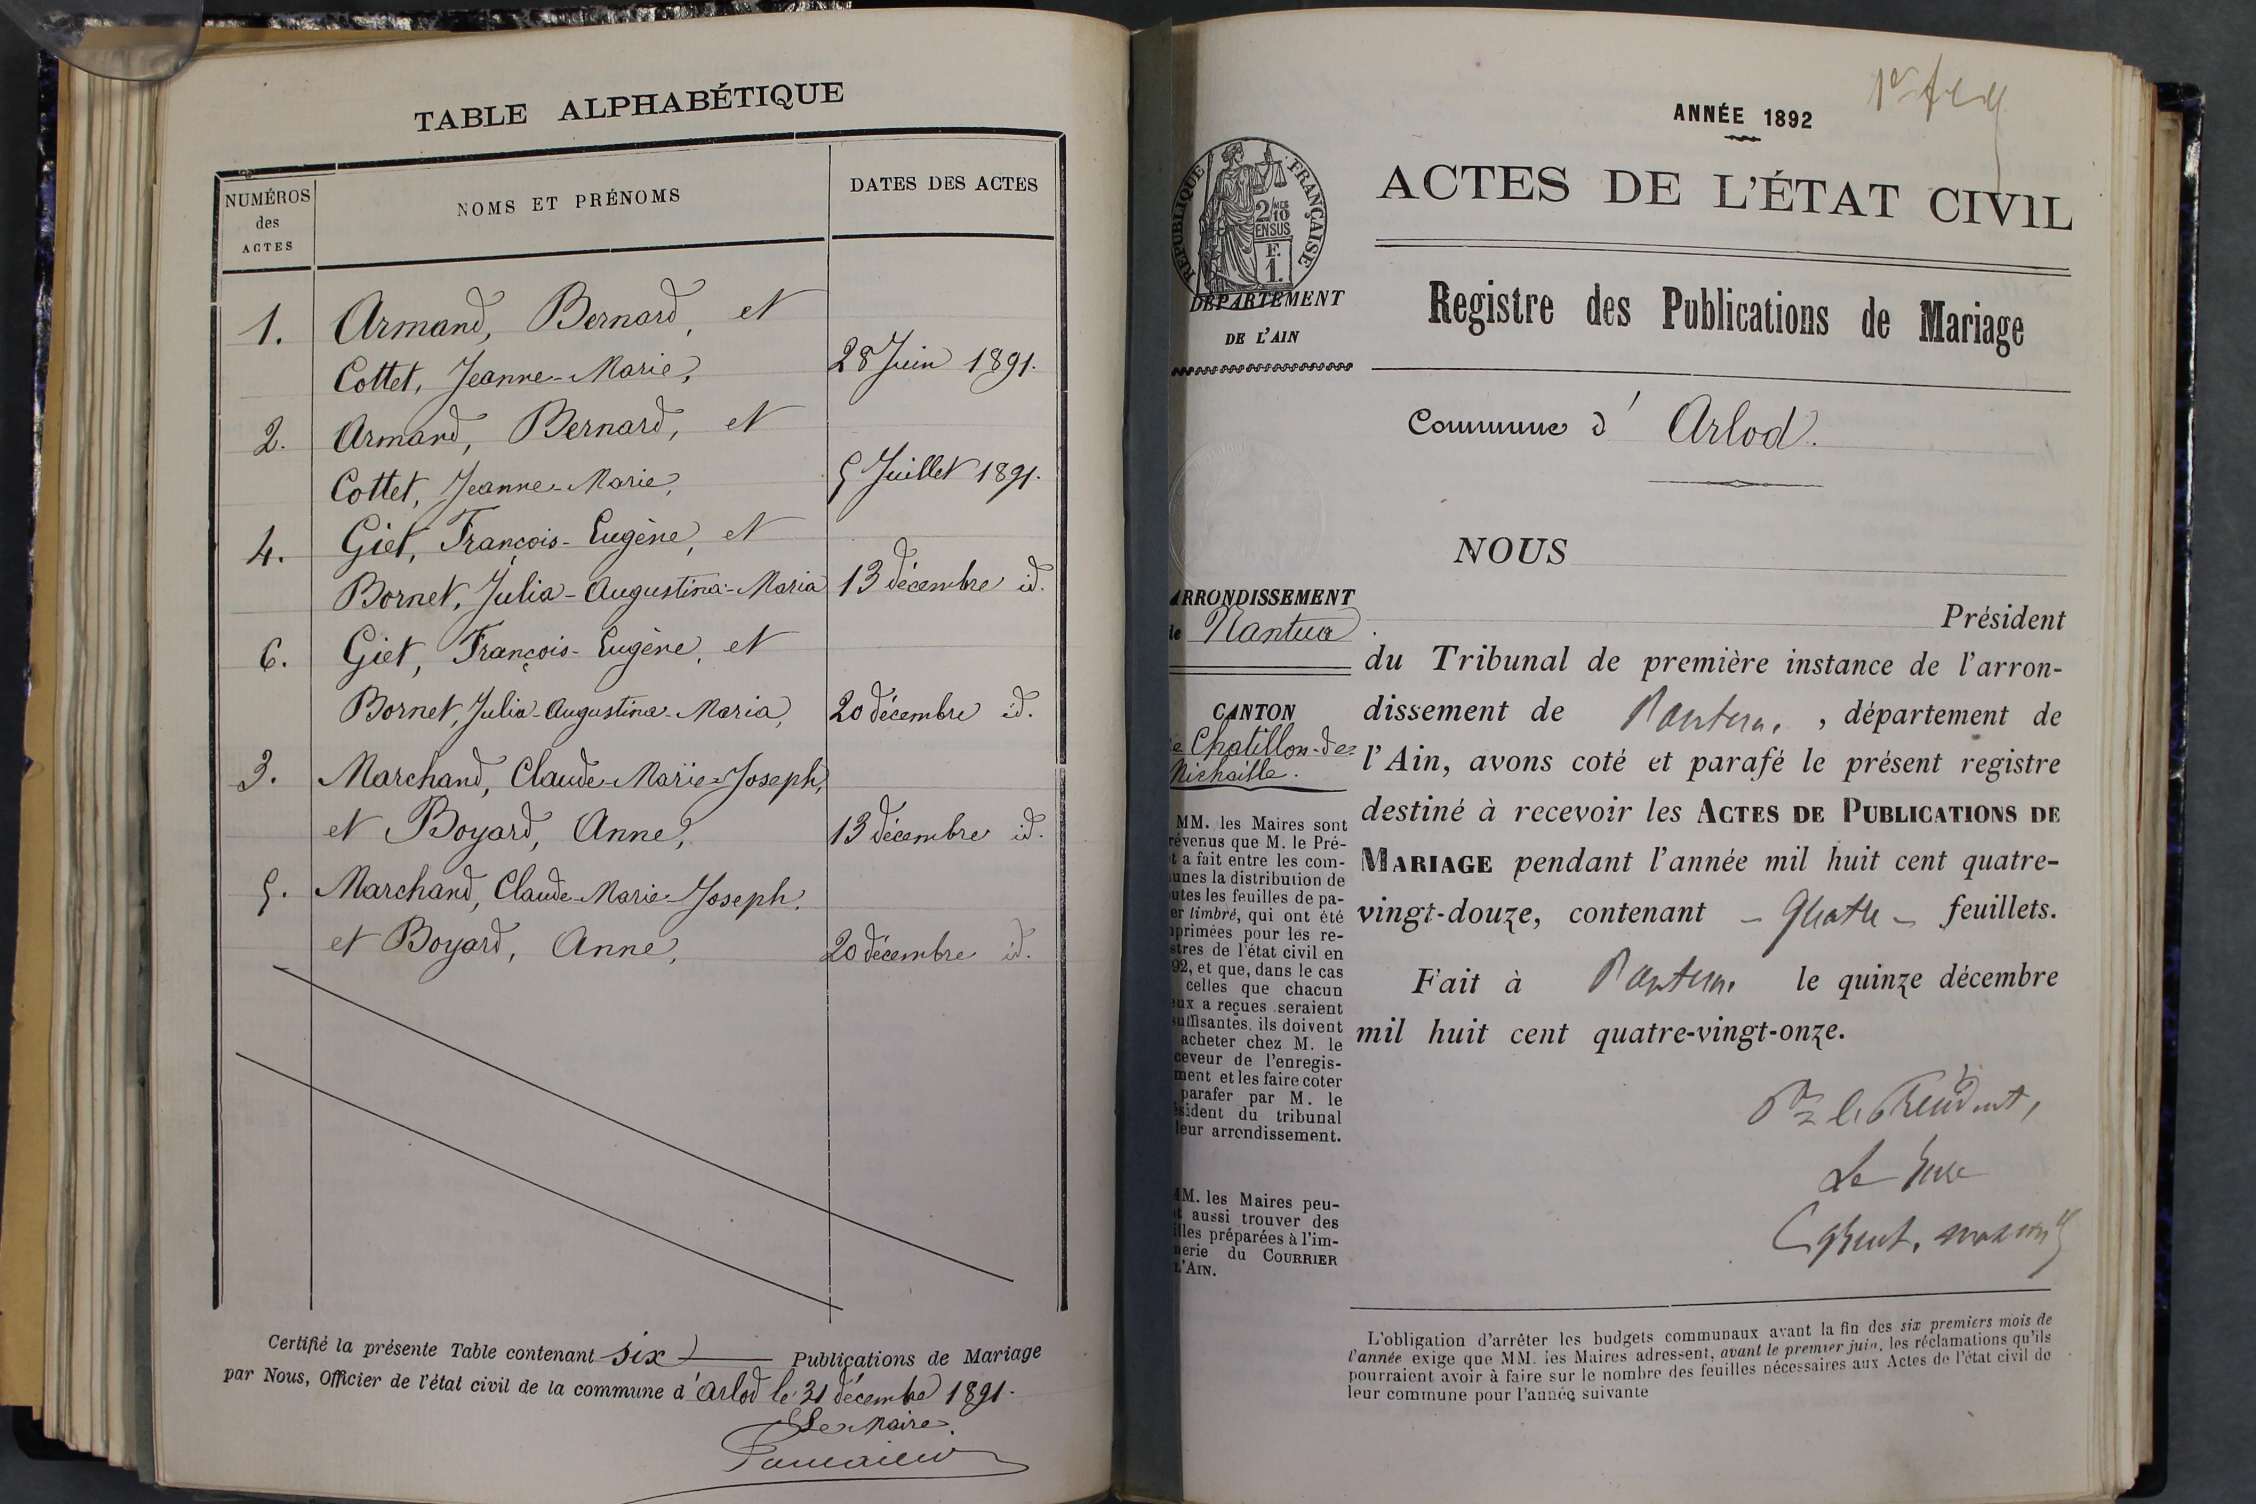 TABLE ALPHABÉTIQUE
NUMÉROS
des
ACTES
NOMS ET PRÉNOMS
DATES DES ACTES
1. Armand, Bernard, et
Cottet, Jeanne-Marie, 28 Juin 1891.
2. Armand, Bernard, et
Cottet, Jeanne-Marie, 5 Juillet 1891.
4. Giet, François-Eugène, et
Bornet, Julia-Augustina-Maria 13 décembre id.
6. Giet, François-Eugène, et
Bornet, Julia-Augustina-Maria, 20 décembre id.
3. Marchand, Claude-Marie-Joseph,
et Boyard, Anne, 13 décembre id.
5. Marchand, Claude-Marie-Joseph,
et Boyard, Anne, 20 décembre id.
Certifié la présente Table contenant six Publications de Mariage
par Nous, Officier de l'état civil de la commune d'Arlod le 31 décembre 1891.
Le Maire.
ANNÉE 1892
ACTES DE L'ÉTAT CIVIL
RÉPUBLIQUE FRANÇAISE
2/10
EN SUS
F.
1.
DÉPARTEMENT
DE L'AIN
Registre des Publications de Mariage
Commune d'Arlod.
ARRONDISSEMENT
de Nantua
CANTON
de Chatillon-de-
Michaille.
MM. les Maires sont
révenus que M. le Pré-
t a fait entre les com-
unes la distribution de
outes les feuilles de pa-
er timbré, qui ont été
primées pour les re-
stres de l'état civil en
92, et que, dans le cas
celles que chacun
eux a reçues seraient
suffisantes, ils doivent
acheter chez M. le
ceveur de l'enregis-
ment et les faire coter
parafer par M. le
ésident du tribunal
leur arrondissement.
MM. les Maires peu-
t aussi trouver des
illes préparées à l'im-
merie du COURRIER
L'AIN.
NOUS
Président
du Tribunal de première instance de l'arron-
dissement de Nantua, département de
l'Ain, avons coté et parafé le présent registre
destiné à recevoir les ACTES DE PUBLICATIONS DE
MARIAGE pendant l'année mil huit cent quatre-
vingt-douze, contenant - Quatre - feuillets.
Fait à Nantua, le quinze décembre
mil huit cent quatre-vingt-onze.
Pr le Président,
Le Juge
L'obligation d'arrêter les budgets communaux avant la fin des six premiers mois de
l'année exige que MM. les Maires adressent, avant le premier juin, les réclamations qu'ils
pourraient avoir à faire sur le nombre des feuilles nécessaires aux Actes de l'état civil de
leur commune pour l'année suivante